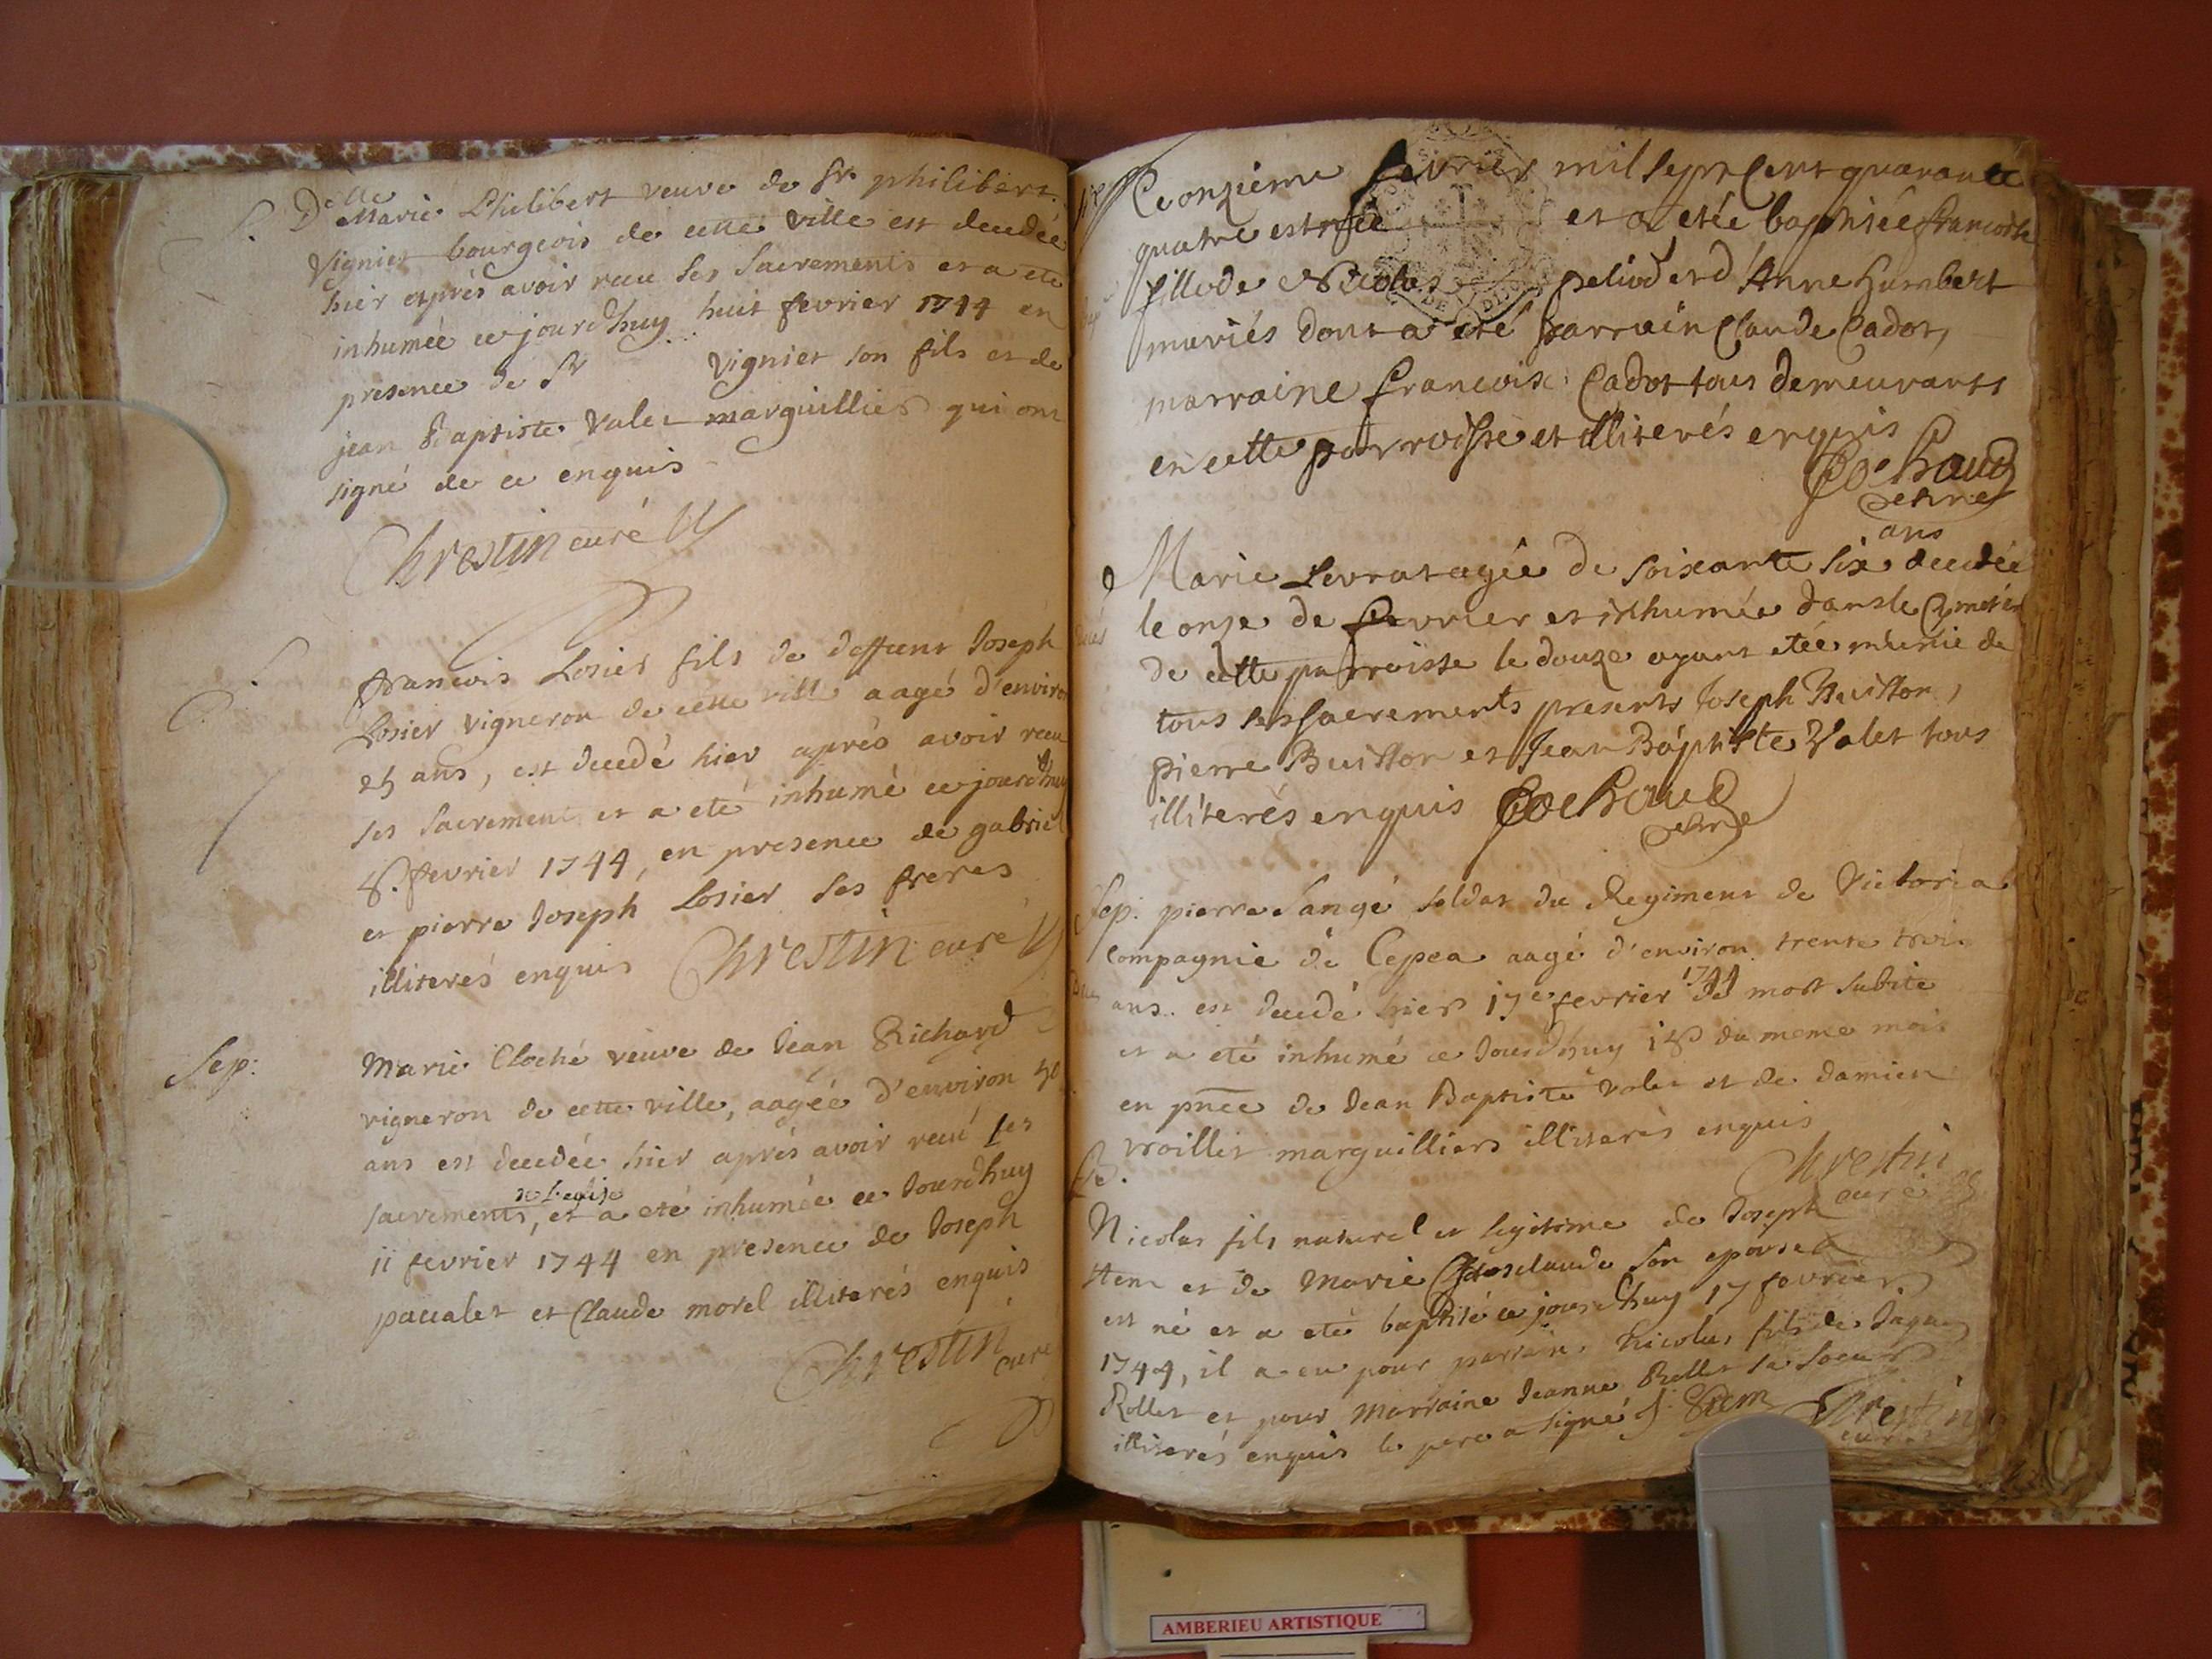 S. Delle Marie Philibert veuve de Sr philibert
Vignier bourgeois de cette ville est decedée
hier après avoir receu ses sacrements et a eté
inhumée ce jourdhuy huit fevrier 1744 en
presence de Sr Vignier son fils et de
jean Baptiste Valet marguillier qui ont
signé de ce enquis
Chrestin curé
S. francois Losier fils de deffunt Joseph
Losier vigneron de cette ville aagé d'environ
25 ans, est decedé hier aprés avoir receu
ses sacrement et a eté inhumé ce jourdhuy
8. fevrier 1744, en presence de gabriel
et pierre Joseph Losier ses freres
illiterés enquis Chrestin curé
Sep: Marie Cloché veuve de Jean Richard
vigneron de cette ville, aagée d'environ
ans est decedée hier aprés avoir receu ses
de l'eglise
sacrements, et a eté inhumée ce Jourdhuy
11 fevrier 1744 en presence de Joseph
paccalet et Claude morel illiterés enquis
Chrestin curé
Le onzieme fevrier mil sept cent quarante
quatre est née et a etée baptisée francoise
fille de Nicolas peliod et d'Anne humbert
mariés dont a eté parrain Claude Cadot,
marraine francoise Cadot tous demeurants
en cette parroisse et illiterés enquis
Cochaud
ans
Marie Levrat agée de soixante six decedée
le onze de fevrier et inhumée dans le Cymetier
de cette parroisse le douze ayant etée munie de
tous ses sacrements presents Joseph Buisson,
pierre Buisson et Jean Baptiste Valet tous
illiterés enquis Cochaud
Sep: pierre Sangé soldat du Regiment de Victoria
Compagnie de Cepea aagé d'environ trente trois
1744
ans. est decedé hier 17e fevrier de mort subite
et a eté inhumé ce Jourdhuy 18 du meme mois
en pnce de Jean Baptiste valet et de damien
vroillet marguilliers illiterés enquis
Chrestin
curé
Nicolas fils naturel et legitime de Joseph
Stem et de Marie Grosclaude son epouse
est né et a eté baptisé ce jourdhuy 17 fevrier
1744, il a eu pour parrain Nicolas fils de Jaque
Rollet et pour Marraine Jeanne Rollet sa soeur
illiterés enquis le pere a signé J. Stem Chrestin
curé
AMBERIEU ARTISTIQUE